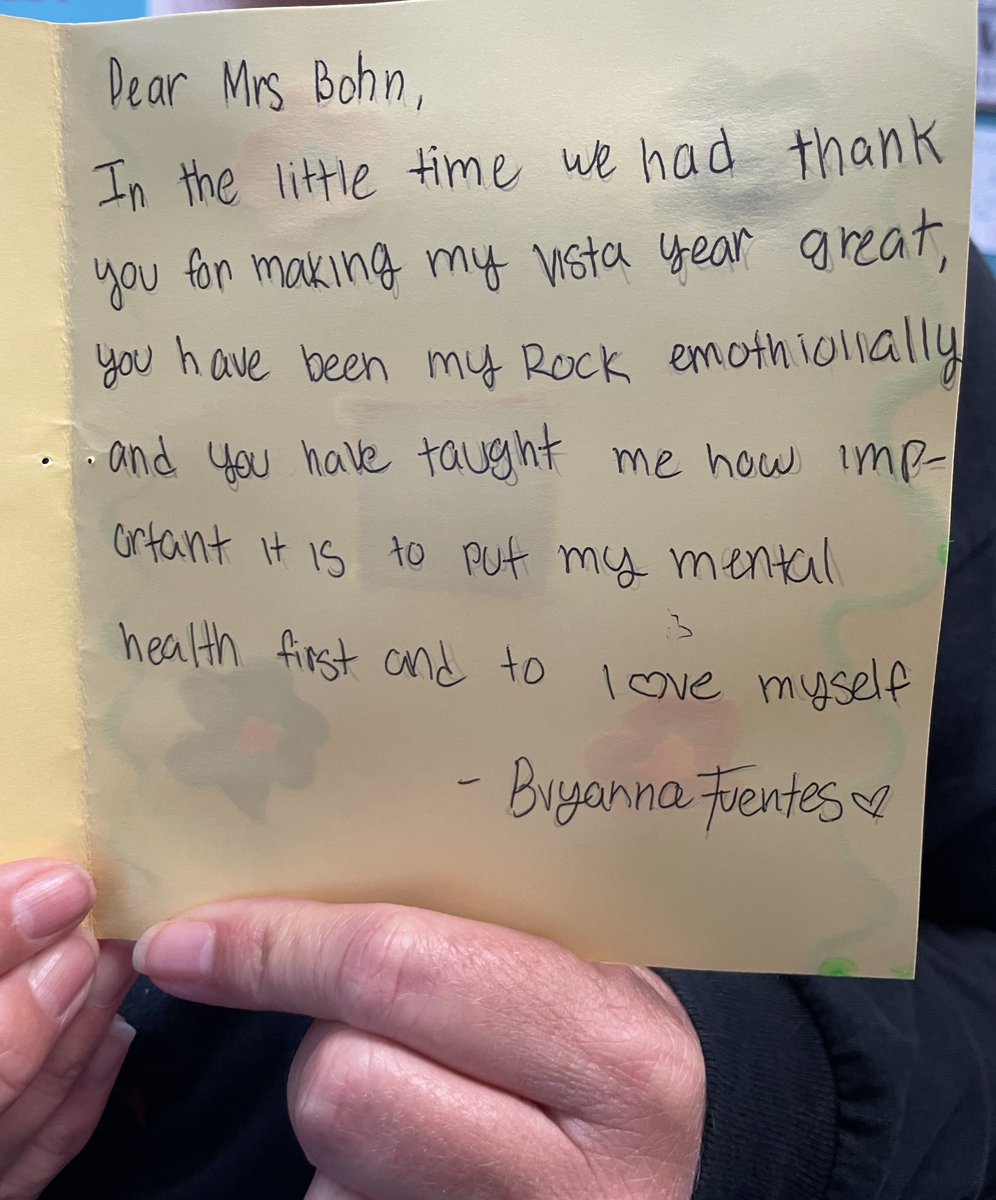 Dear Mrs Bohn,
In the little time we had thank
you for making my vista year great,
you have been my Rock emothionally
and you have taught me how imp-
ortant it is to put my mental
health first and to love myself
- Bryanna Fuentes ♡